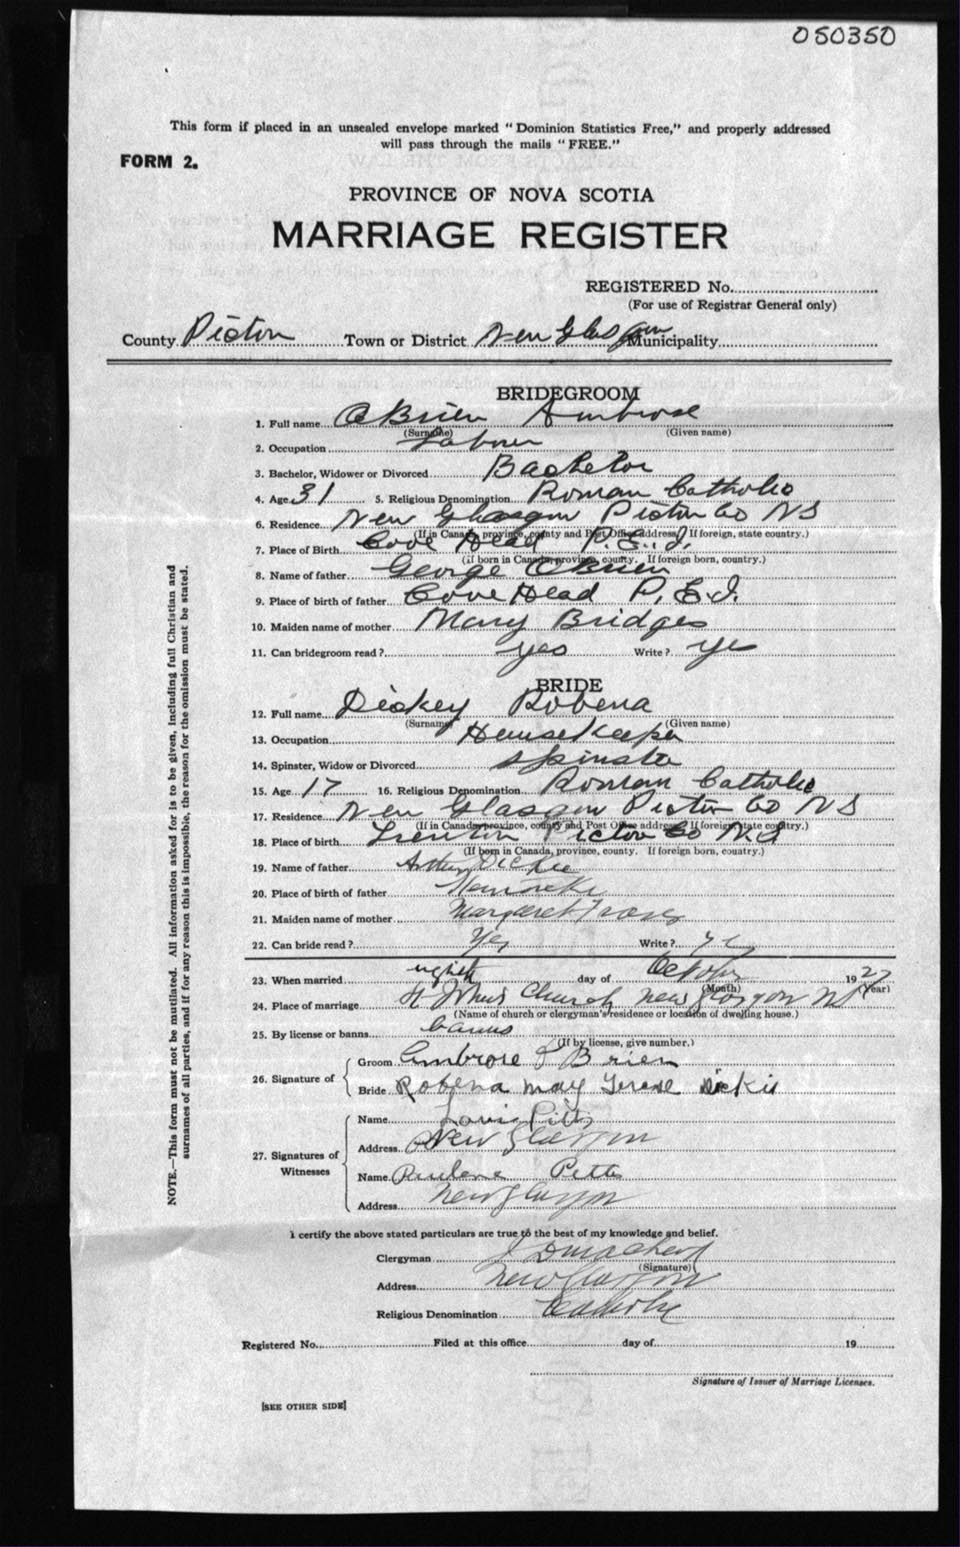 050350
This form if placed in an unsealed envelope marked "Dominion Statistics Free," and properly addressed
will pass through the mails "FREE."
FORM 2.
PROVINCE OF NOVA SCOTIA
MARRIAGE REGISTER
REGISTERED No.
(For use of Registrar General only)
County Pictou Town or District New Glasgow Municipality
BRIDEGROOM
1. Full name O'Brien Ambrose
(Surname) (Given name)
2. Occupation Laborer
3. Bachelor, Widower or Divorced Bachelor
4. Age 31 5. Religious Denomination Roman Catholic
6. Residence New Glasgow Pictou Co NS
(If in Canada, province, county and Post Office address. If foreign, state country.)
7. Place of Birth Cove Head P.E.I.
(if born in Canada, province, county. If foreign born, country.)
8. Name of father George O'Brien
9. Place of birth of father Cove Head P.E.I.
10. Maiden name of mother Mary Bridges
11. Can bridegroom read? yes Write? yes
BRIDE
12. Full name Dickey Robena
(Surname) (Given name)
13. Occupation Housekeeper
14. Spinster, Widow or Divorced Spinster
15. Age 17 16. Religious Denomination Roman Catholic
17. Residence New Glasgow Pictou Co NS
(If in Canada, province, county and Post Office address. If foreign, state country.)
18. Place of birth Trenton Pictou Co N.S
(If born in Canada, province, county. If foreign born, country.)
19. Name of father Arthur Dickie
20. Place of birth of father
21. Maiden name of mother Margaret
22. Can bride read? Yes Write? Yes
23. When married eighth day of October 1927
(Month) (Year)
24. Place of marriage St Johns Church New Glasgow NS
(Name of church or clergyman's residence or location of dwelling house.)
25. By license or banns banns
(If by license, give number.)
26. Signature of Groom Ambrose O'Brien
Bride Robena May Terese Dickie
27. Signatures of Witnesses Name Louis Pitts
Address New Glasgow
Name Paulene Pitts
Address New Glasgow
I certify the above stated particulars are true to the best of my knowledge and belief.
Clergyman
(Signature)
Address New Glasgow
Religious Denomination Catholic
Registered No. Filed at this office day of 19
Signature of Issuer of Marriage Licenses.
[SEE OTHER SIDE]
NOTE.—This form must not be mutilated. All information asked for is to be given, including full Christian and
surnames of all parties, and if for any reason this is impossible, the reason for the omission must be stated.